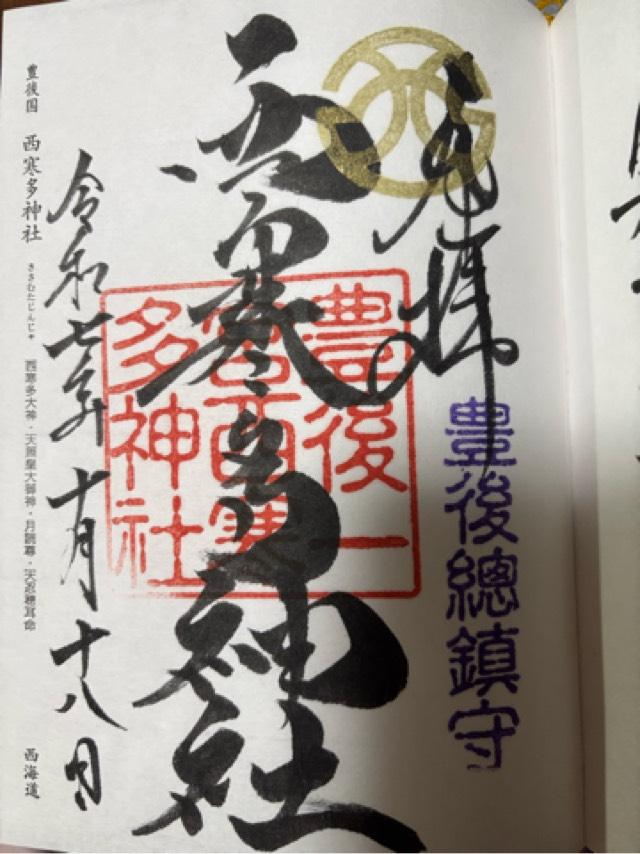 奉拝
豊後總鎮守
西寒多神社
豊後一
宮西寒
多神社
令和七年十月十八日
豊後国 西寒多神社 ささむたじんじゃ 西寒多大神・天照皇大御神・月読尊・天忍穂耳命 西海道